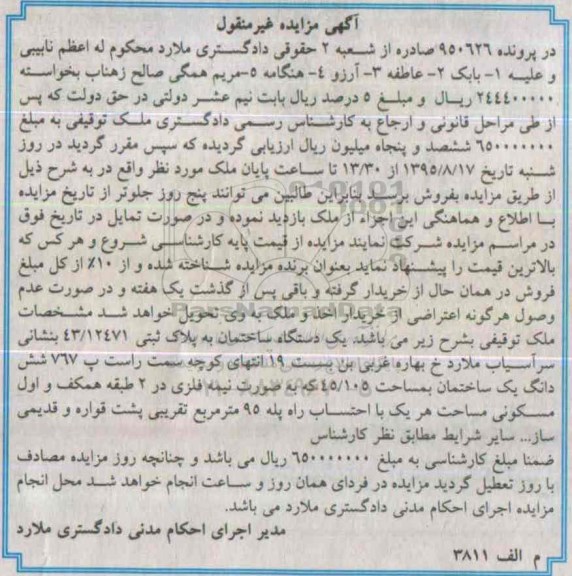 آگهی مزایده غیرمنقول
در پرونده ۹۵۰۶۲۶ صادره از شعبه ۲ حقوقی دادگستری ملارد محکوم له اعظم نایبی
و علیه ۱- بابک ۲- عاطفه ۳- آرزو ٤- هنگامه ٥-مریم همگی صالح زهتاب بخواسته
۲٤٤٤۰۰۰۰۰ ریال و مبلغ ٥ درصد ریال بابت نیم عشر دولتی در حق دولت که پس
از طی مراحل قانونی و ارجاع به کارشناس رسمی دادگستری ملک توقیفی به مبلغ
٦٥۰۰۰۰۰۰۰ ششصد و پنجاه میلیون ریال ارزیابی گردیده که سپس مقرر گردید در روز
شنبه تاریخ ۱۳۹٥/۸/۱۷ از ۱۳/۳۰ تا ساعت پایان ملک مورد نظر واقع در به شرح ذیل
از طریق مزایده بفروش برسد. بنابراین طالبین می توانند پنج روز جلوتر از تاریخ مزایده
با اطلاع و هماهنگی این اجرا، از ملک بازدید نموده و در صورت تمایل در تاریخ فوق
در مراسم مزایده شرکت نمایند مزایده از قیمت پایه کارشناسی شروع و هر کس که
بالاترین قیمت را پیشنهاد نماید بعنوان برنده مزایده شناخته شده و از ۱۰٪ از کل مبلغ
فروش در همان حال از خریدار گرفته و باقی پس از گذشت یک هفته و در صورت عدم
وصول هرگونه اعتراضی از خریدار اخذ و ملک به وی تحویل خواهد شد مشخصات
ملک توقیفی بشرح زیر می باشد. یک دستگاه ساختمان به پلاک ثبتی ٤۳/۱۲٤۷۱ بنشانی
سرآسیاب ملارد خ بهاره غربی بن بست ۱۹ انتهای کوچه سمت راست پ ۷٦۷ شش
دانگ یک ساختمان بمساحت ٤٥/۱۰٥ که به صورت نیمه فلزی در ۲ طبقه همکف و اول
مسکونی مساحت هر یک با احتساب راه پله ۹٥ مترمربع تقریبی پشت قواره و قدیمی
ساز... سایر شرایط مطابق نظر کارشناس
ضمنا مبلغ کارشناسی به مبلغ ٦٥۰۰۰۰۰۰۰ ریال می باشد و چنانچه روز مزایده مصادف
با روز تعطیل گردید مزایده در فردای همان روز و ساعت انجام خواهد شد محل انجام
مزایده اجرای احکام مدنی دادگستری ملارد می باشد.
مدیر اجرای احکام مدنی دادگستری ملارد
م الف ۳۸۱۱